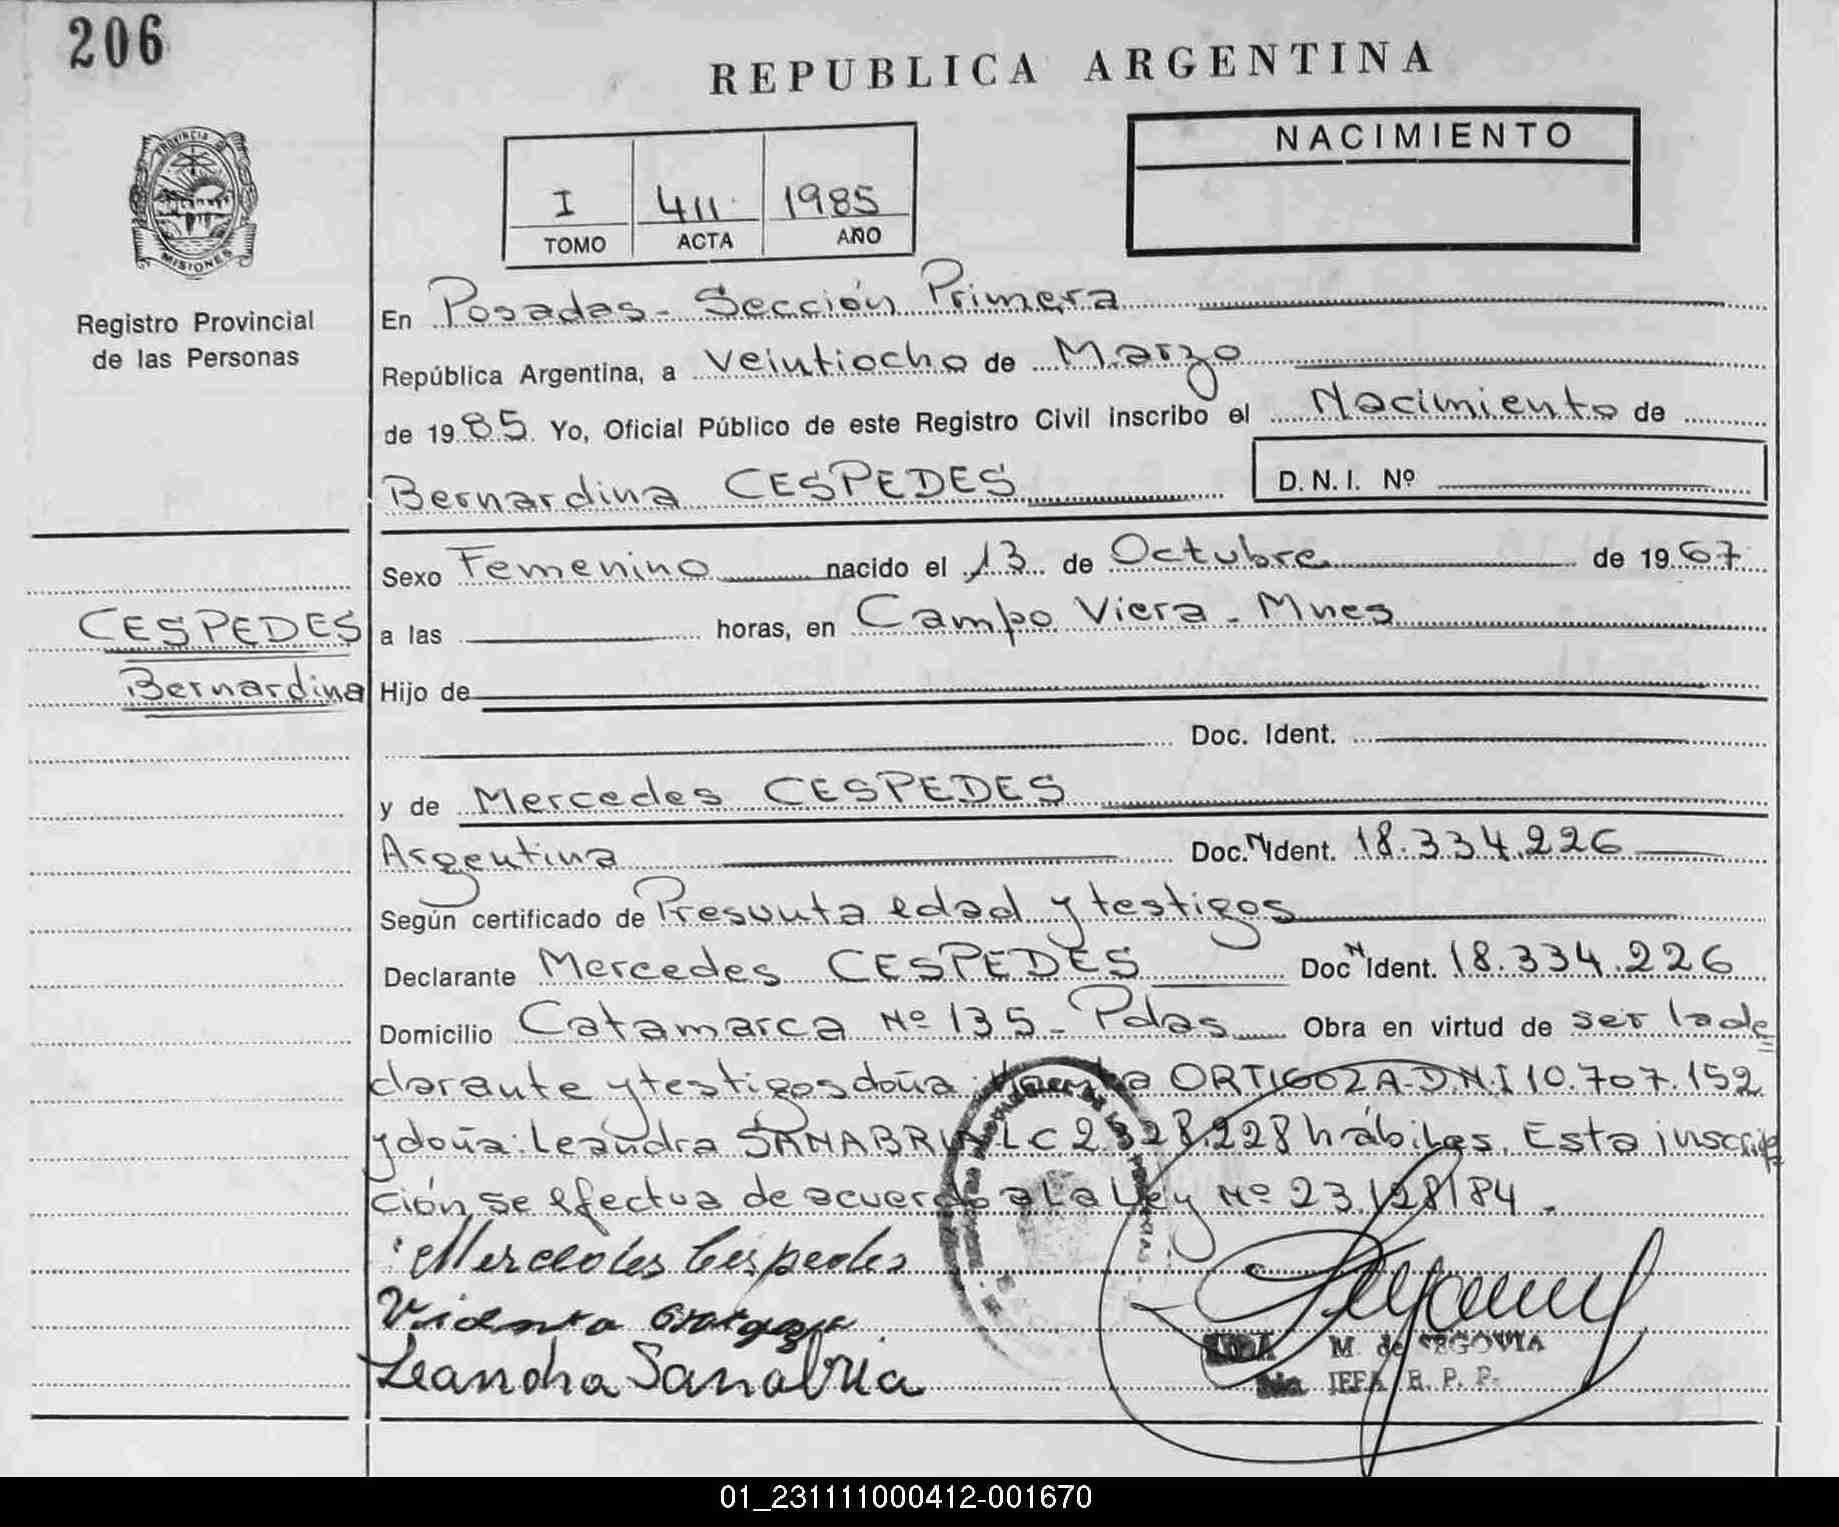 206
REPUBLICA ARGENTINA
NACIMIENTO
I 411 1985
TOMO ACTA AÑO
PROVINCIA DE
MISIONES
Registro Provincial
de las Personas
En Posadas - Sección Primera
República Argentina, a Veintiocho de Marzo
de 1985. Yo, Oficial Público de este Registro Civil inscribo el Nacimiento de
Bernardina CESPEDES D.N.I. Nº
Sexo Femenino nacido el 13 de Octubre de 1967
CESPEDES
Bernardina
a las horas, en Campo Viera - Mnes
Hijo de
Doc. Ident.
y de Mercedes CESPEDES
Argentina Doc. N Ident. 18.334.226
Según certificado de Presunta edad y testigos
Declarante Mercedes CESPEDES Doc N Ident. 18.334.226
Domicilio Catamarca Nº 135 - Pdas Obra en virtud de ser la de
clarante y testigos doña: ORTIGOZA - D.N.I 10.707.152
y doña: Leandra SANABRIA LC hábiles. Esta inscrip
ción se efectua de acuerdo a la Ley Nº 23.128/84 -
Mercedes Cespedes
Leandra Sanabria
M. de SEGOVIA
JEFA R. P. P.
01_231111000412-001670